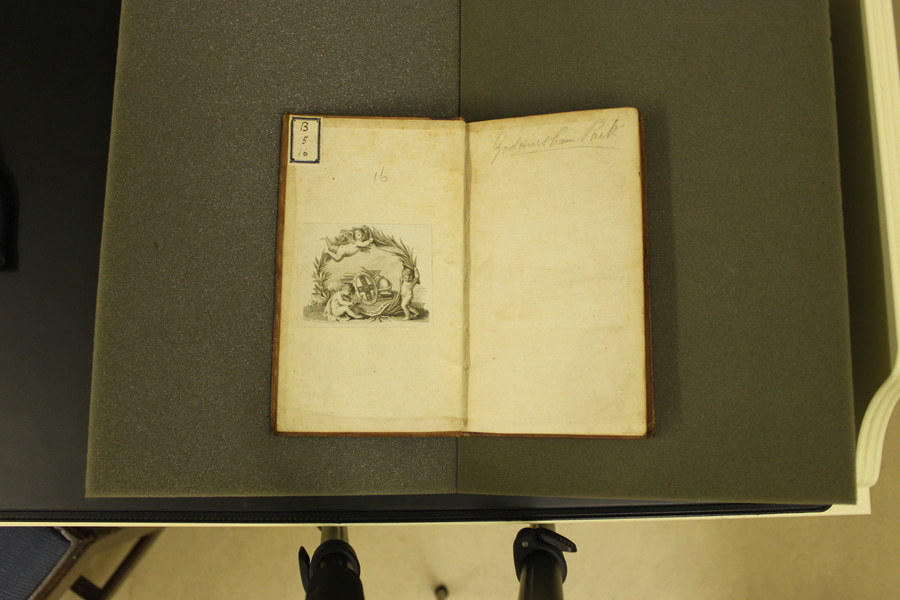 B
5
10
16
Godmersham Park